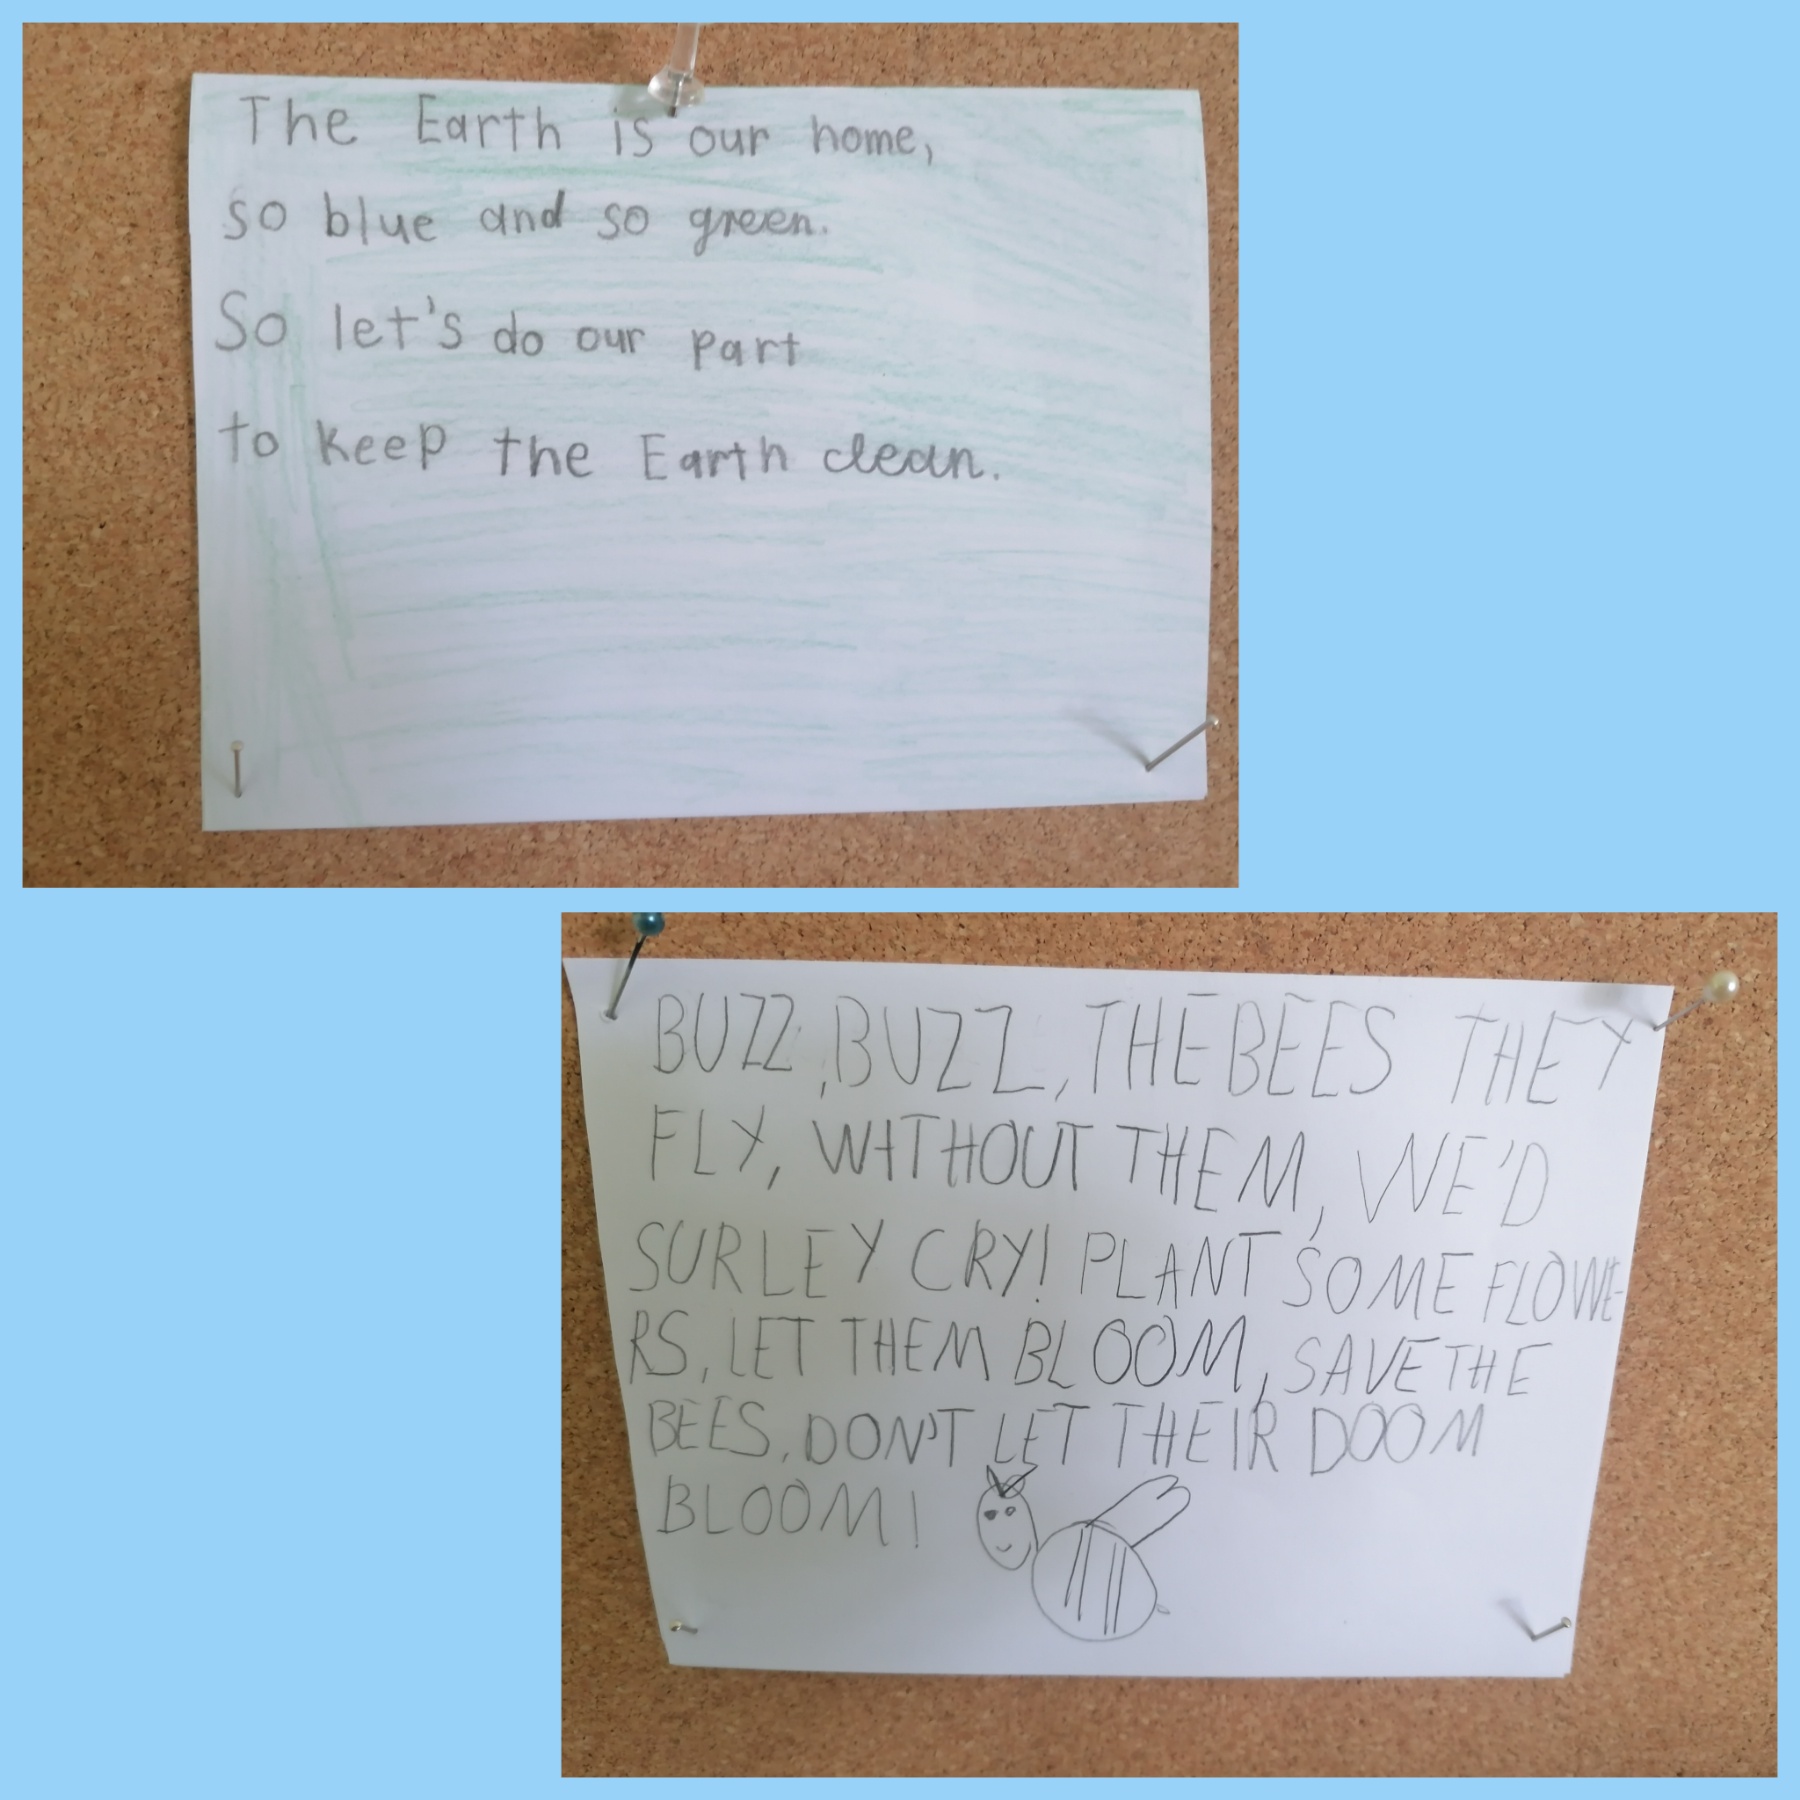 The Earth is our home,
so blue and so green.
So let's do our part
to keep the Earth clean.
BUZZ, BUZZ, THE BEES THEY
FLY, WITHOUT THEM, WE'D
SURLEY CRY! PLANT SOME FLOWE-
RS, LET THEM BLOOM, SAVE THE
BEES, DON'T LET THEIR DOOM
BLOOM!